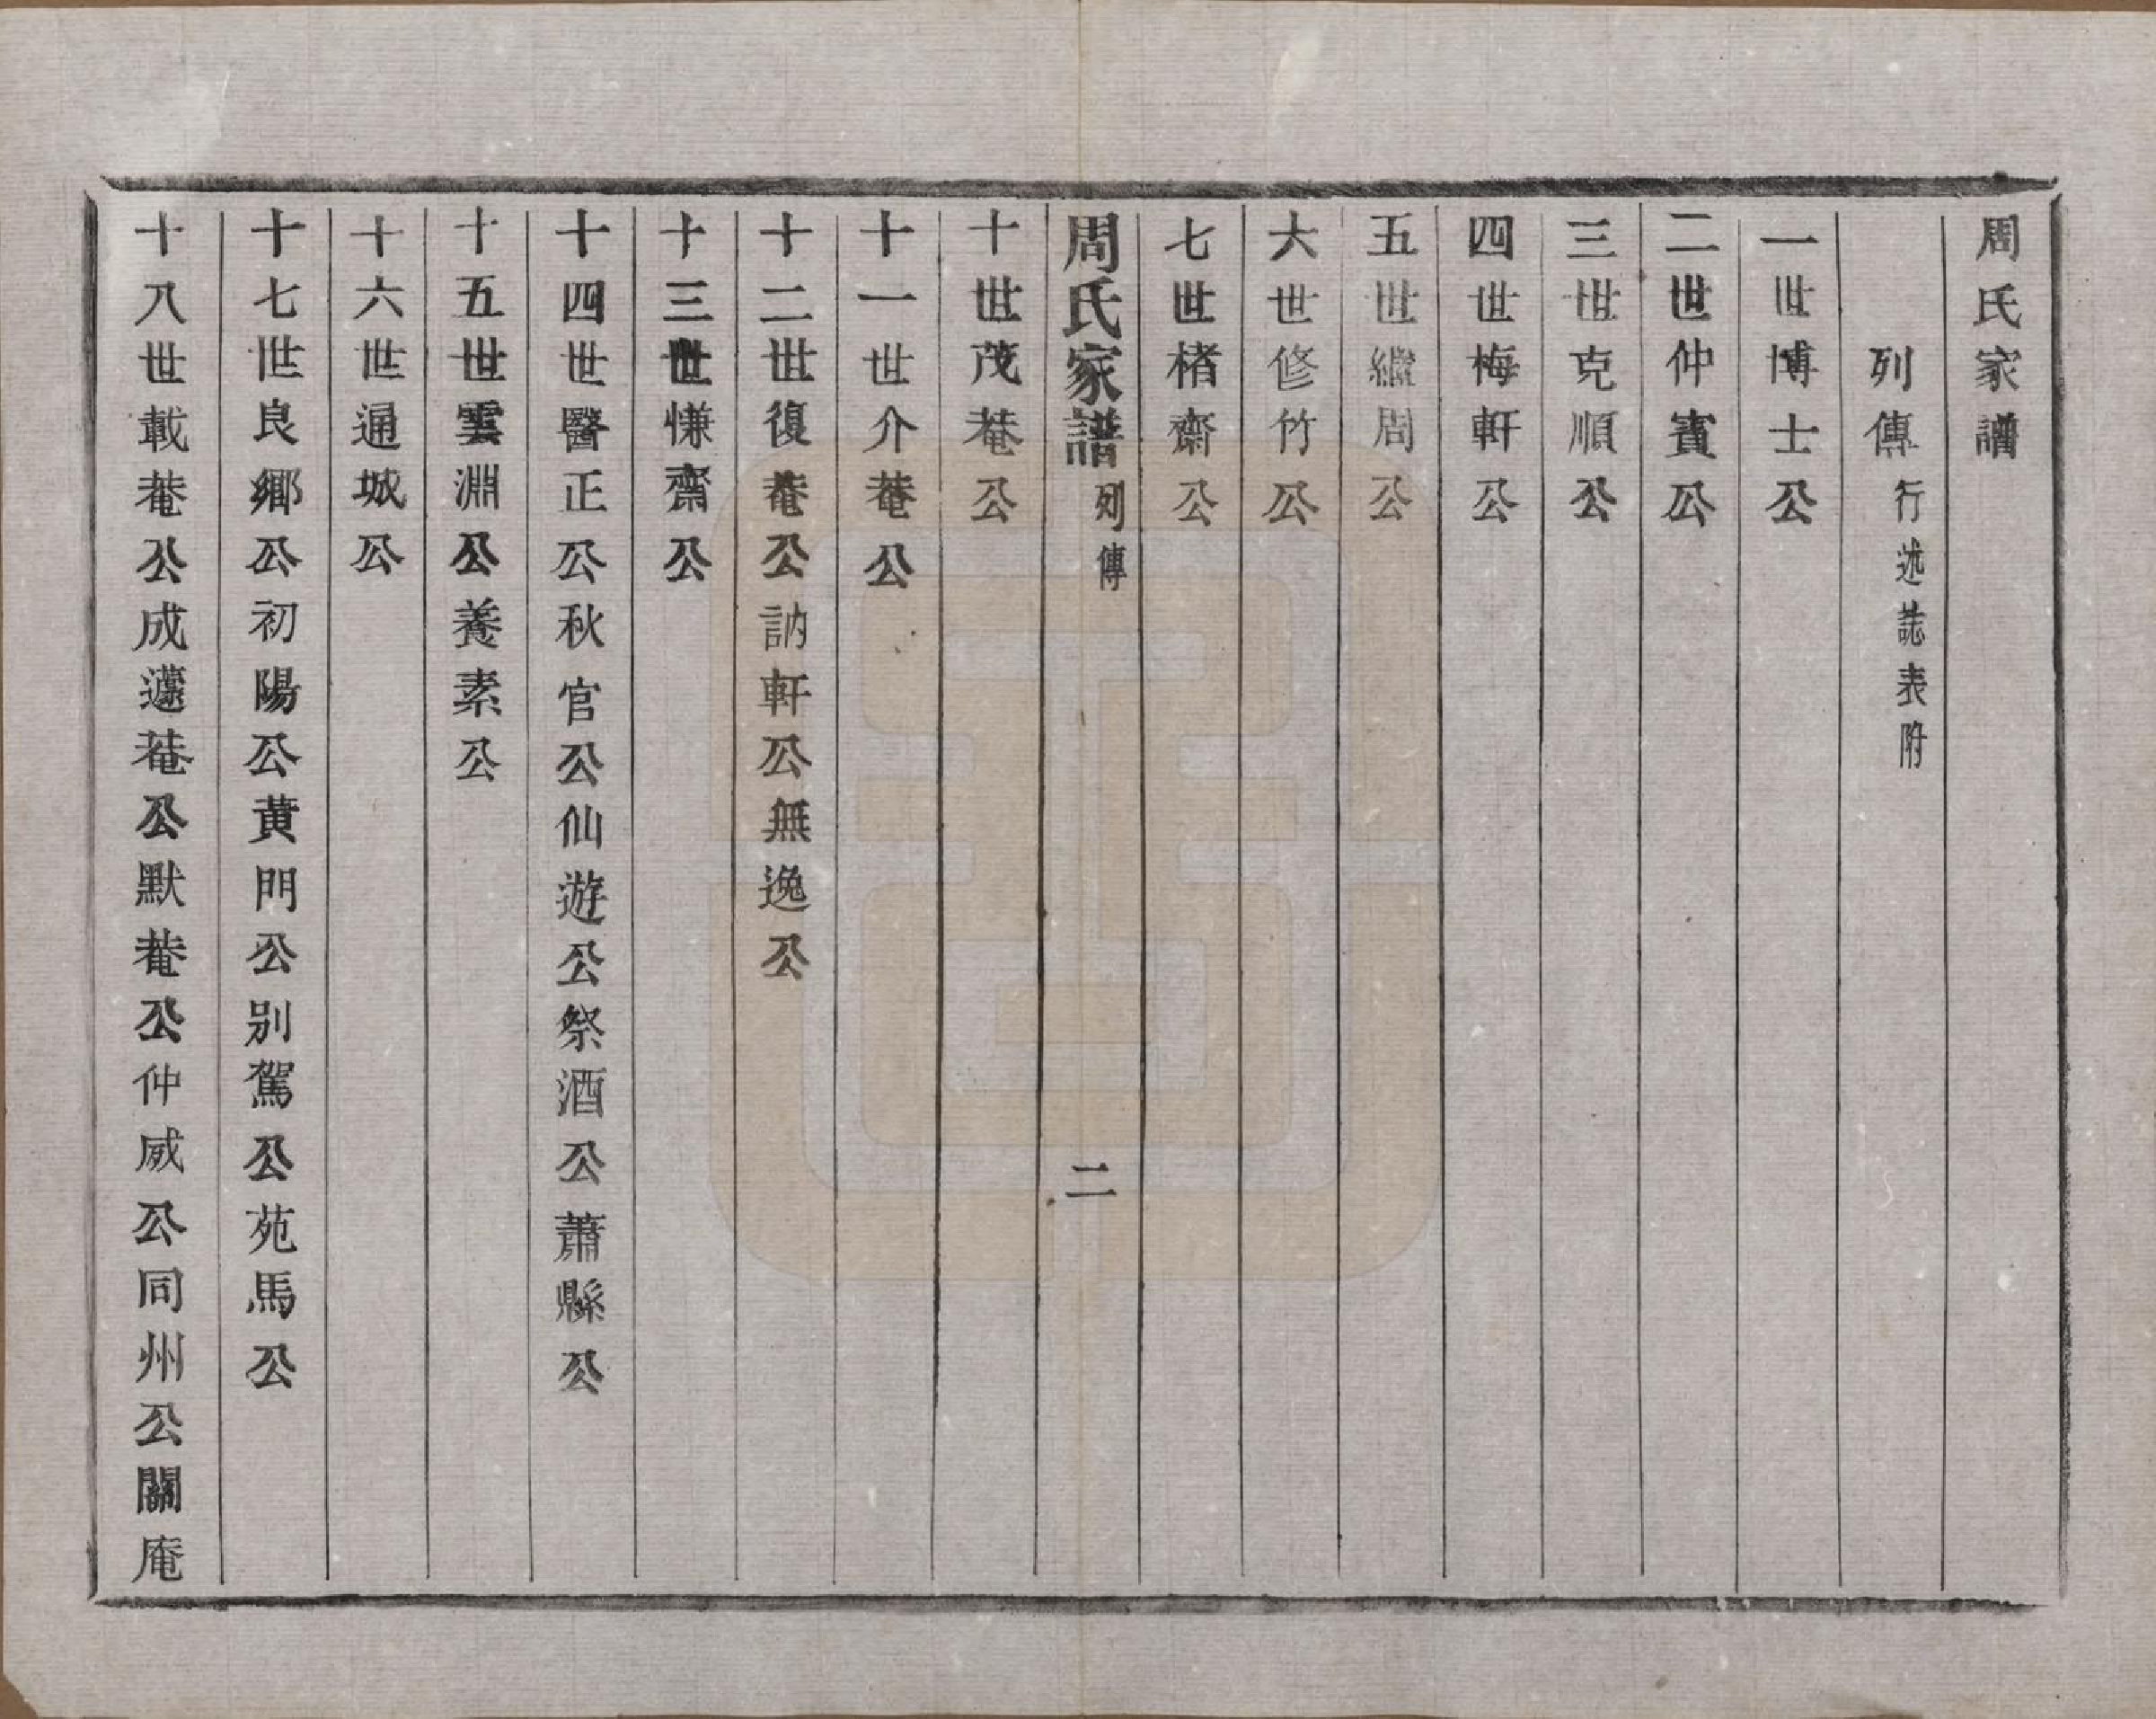 周氏家譜
列傳行述誌表附
一世博士公
二世仲賓公
三世克順公
四世梅軒公
五世繼周公
六世修竹公
七世楮齋公
周氏家譜列傳 二
十世茂菴公
十一世介菴公
十二世復菴公訥軒公無逸公
十三世慊齋公
十四世醫正公秋官公仙遊公祭酒公蕭縣公
十五世雲淵公養素公
十六世通城公
十七世良鄉公初陽公黄門公别駕公苑馬公
十八世載菴公成邁菴公默菴公仲威公同州公關庵